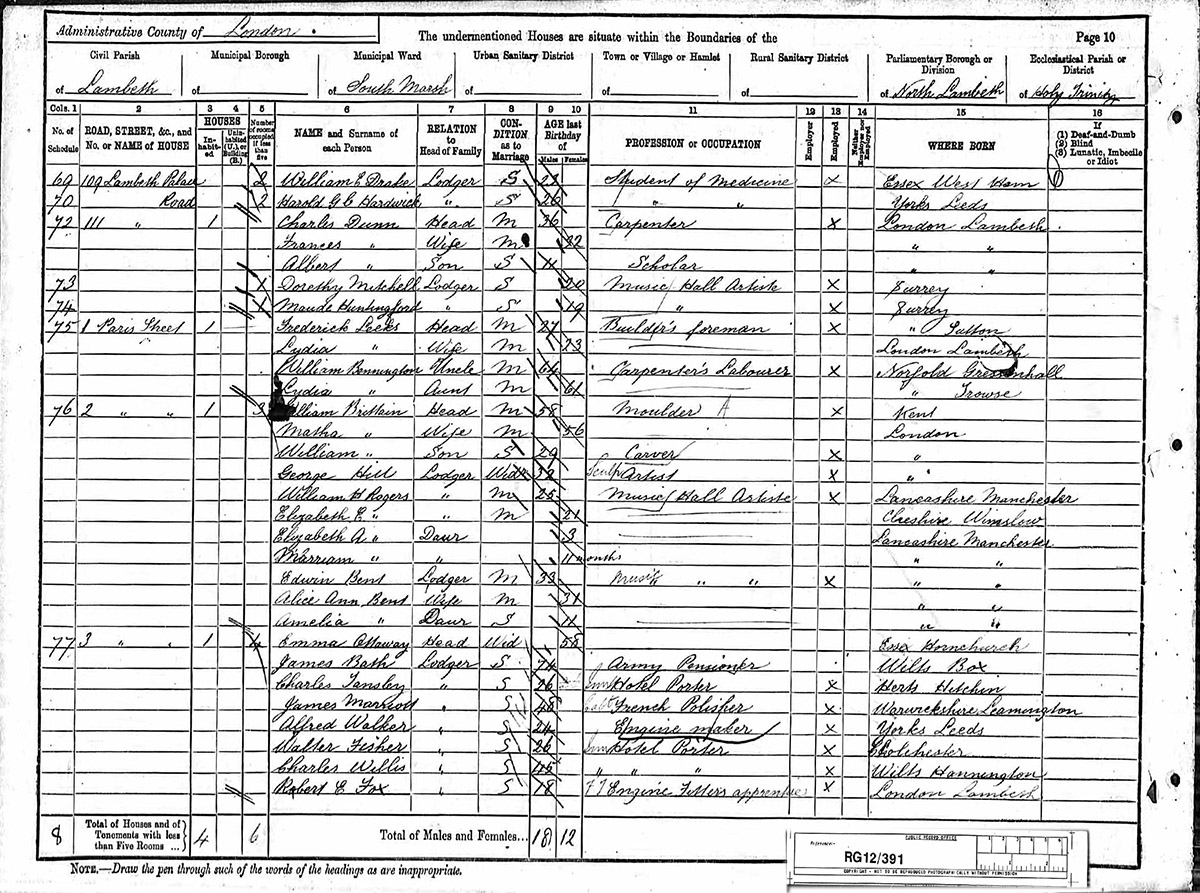 Administrative County of London. The undermentioned Houses are situate within the Boundaries of the Page 10
Civil Parish Municipal Borough Municipal Ward Urban Sanitary District Town or Village or Hamlet Rural Sanitary District Parliamentary Borough or Division Ecclesiastical Parish or District
of Lambeth of of South Marsh of of of of North Lambeth of Holy Trinity
Cols. 1 2 3 4 5 6 7 8 9 10 11 12 13 14 15 16
No. of Schedule ROAD, STREET, &c., and No. or NAME of HOUSE HOUSES Inhabited Uninhabited (U.), or Building (B.) Number of rooms occupied if less than five NAME and Surname of each Person RELATION to Head of Family CONDITION as to Marriage AGE last Birthday of Males Females PROFESSION or OCCUPATION Employer Employed Neither Employer nor Employed WHERE BORN If (1) Deaf-and-Dumb (2) Blind (3) Lunatic, Imbecile or Idiot
69 109 Lambeth Palace 2 William E Drake Lodger S 22 Student of Medicine x Essex West Ham
70 Road 2 Harold G C Hardwick " S 26 " " Yorks Leeds
72 111 " 1 Charles Dunn Head M 36 Carpenter X London Lambeth
Frances " Wife M 32 " "
Albert " Son S 11 Scholar " "
73 1 Dorothy Mitchell Lodger S 20 Music Hall Artiste X Surrey
74 1 Maude Huntingford " S 19 " X Surrey
75 1 Paris Street 1 Frederick Leeks Head M 27 Builder's foreman X " Sutton
Lydia " Wife M 23 London Lambeth
William Bennington Uncle M 64 Carpenter's Labourer X Norfold Gressenhall
Lydia " Aunt M 61 " Trowse
76 2 " " 1 3 William Brittain Head M 58 Moulder A X Kent
Matha " Wife M 56 London
William " Son S 29 Carver X "
George Hill Lodger Widr 32 Sculp Artist X "
William H Rogers " M 25 Music Hall Artiste X Lancashire Manchester
Elizabeth E " " M 21 Cheshire Wimslow
Elizabeth A " Daur 3 Lancashire Manchester
Marriam " " 11 months " "
Edwin Bent Lodger M 33 Music " " X " "
Alice Ann Bent Wife M 31 " "
Amelia " Daur S 11 " "
77 3 " " 1 4 Emma Ottaway Head Wid 58 Essex Hornchurch
James Bath Lodger S 74 Army Pensioner Wilts Box
Charles Tansley " S 26 Hotel Porter X Herts Hitchin
James Marriott " S 48 French Polisher X Warwickshire Leamington
Alfred Walker " S 24 Engine maker X Yorks Leeds
Walter Fisher " S 26 Hotel Porter X Colchester
Charles Willis " S 45 " " X Wilts Hannington
Robert E Fox " S 18 Engine Fitters apprentice X London Lambeth
8 Total of Houses and of Tenements with less than Five Rooms ... 4 6 Total of Males and Females... 18 12
NOTE.—Draw the pen through such of the words of the headings as are inappropriate.
PUBLIC RECORD OFFICE
Reference:-
RG12/391
COPYRIGHT - NOT TO BE REPRODUCED PHOTOGRAPHICALLY WITHOUT PERMISSION